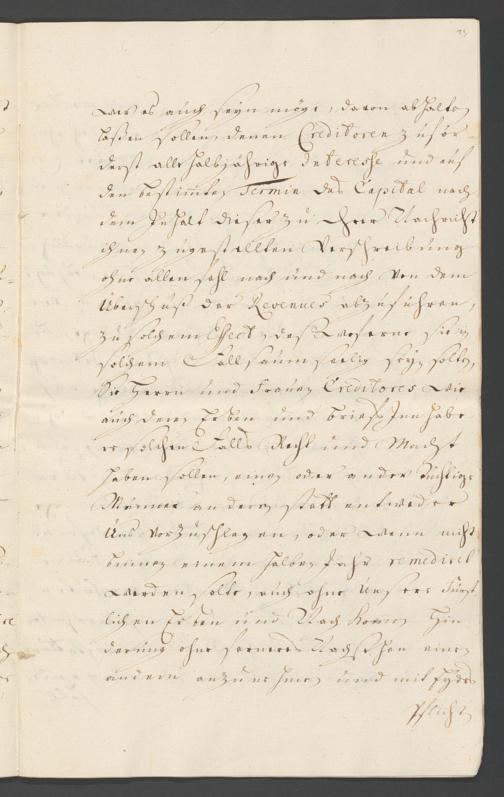 13
wer es auch seyn möge, davon abhalten
laßen sollen, denen Creditoren zuför-
derst alle halbjährige Interesse und auf
den bestimten Termin das Capital nach
dem Inhalt dieser zu Ihrer Nachricht
ihnen zugestellten Verschreibung
ohne allen fehl nach und nach von dem
Überschuß der Revenues abzuführen,
zu solchem Effect, daß woferne sie in
solchem Fall saumseelig seyn solten,
die Herren und Frauen Creditores wie
auch deren Erben und brieffs Innhabe-
re solchen Falls Recht und Macht
haben sollen, einen oder ander tüchtige
Männer an deren statt entweder
Uns vorzuschlagen, oder wenn nicht
binnen einem halben Jahr remediret
werden solte, auch ohne Unsere Fürst-
lichen Erben und Nachkomen Hin-
derung ohne ferneres Nachsehen einen
andern anzunehmen und mit Eydes
Pflicht